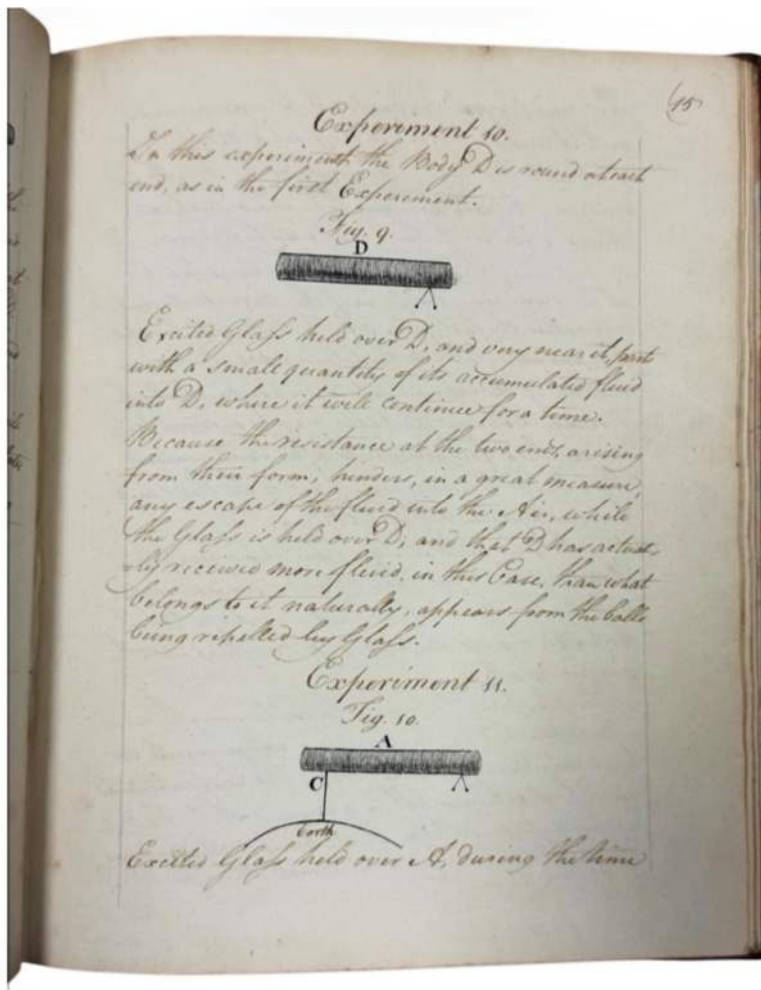 15
Experiment 10.
In this experiment the Body D is round at each
end, as in the first Experiment.
Fig. 9.
D
Excited Glass held over D, and very near it, part
with a small quantity of its accumulated fluid
into D, where it will continue for a time.
Because the resistance at the two ends, arising
from their form, hinders, in a great measure,
any escape of the fluid into the Air, while
the Glass is held over D, and that D has actual
-ly received more fluid, in this Case, than what
belongs to it naturally, appears from the balls
being repelled by Glass.
Experiment 11.
Fig. 10.
A
C
Earth
Excited Glass held over A, during the time